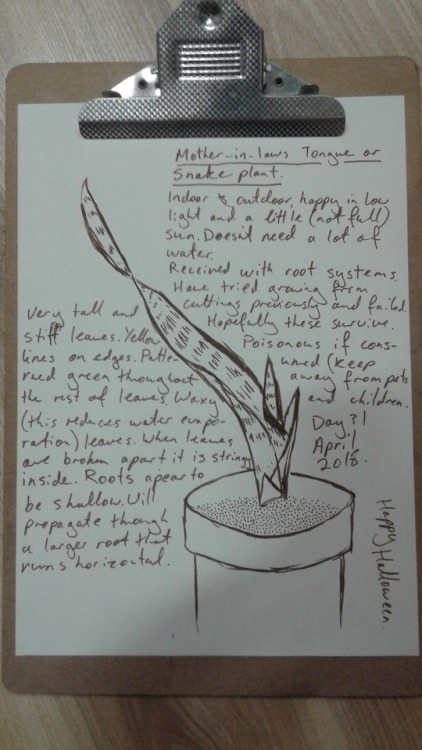 Mother-in-laws Tongue or
Snake plant.
Indoor & outdoor, happy in low
light and a little (not full)
sun. Doesnt need a lot of
water.
Received with root systems.
Have tried growing from
cuttings previously and failed.
Hopefully these survive.
Poisonous if cons-
umed (keep
away from pets
and children.
Day 31
April
2018.
Very tall and
stiff leaves. Yellow
lines on edges. Patte-
rned green throughout
the rest of leaves. Waxy
(this reduces water evapo-
ration) leaves. When leaves
are broken apart it is stringy
inside. Roots apear to
be shallow. Will
propagate through
a larger root that
runs horizontal.
Happy Halloween.